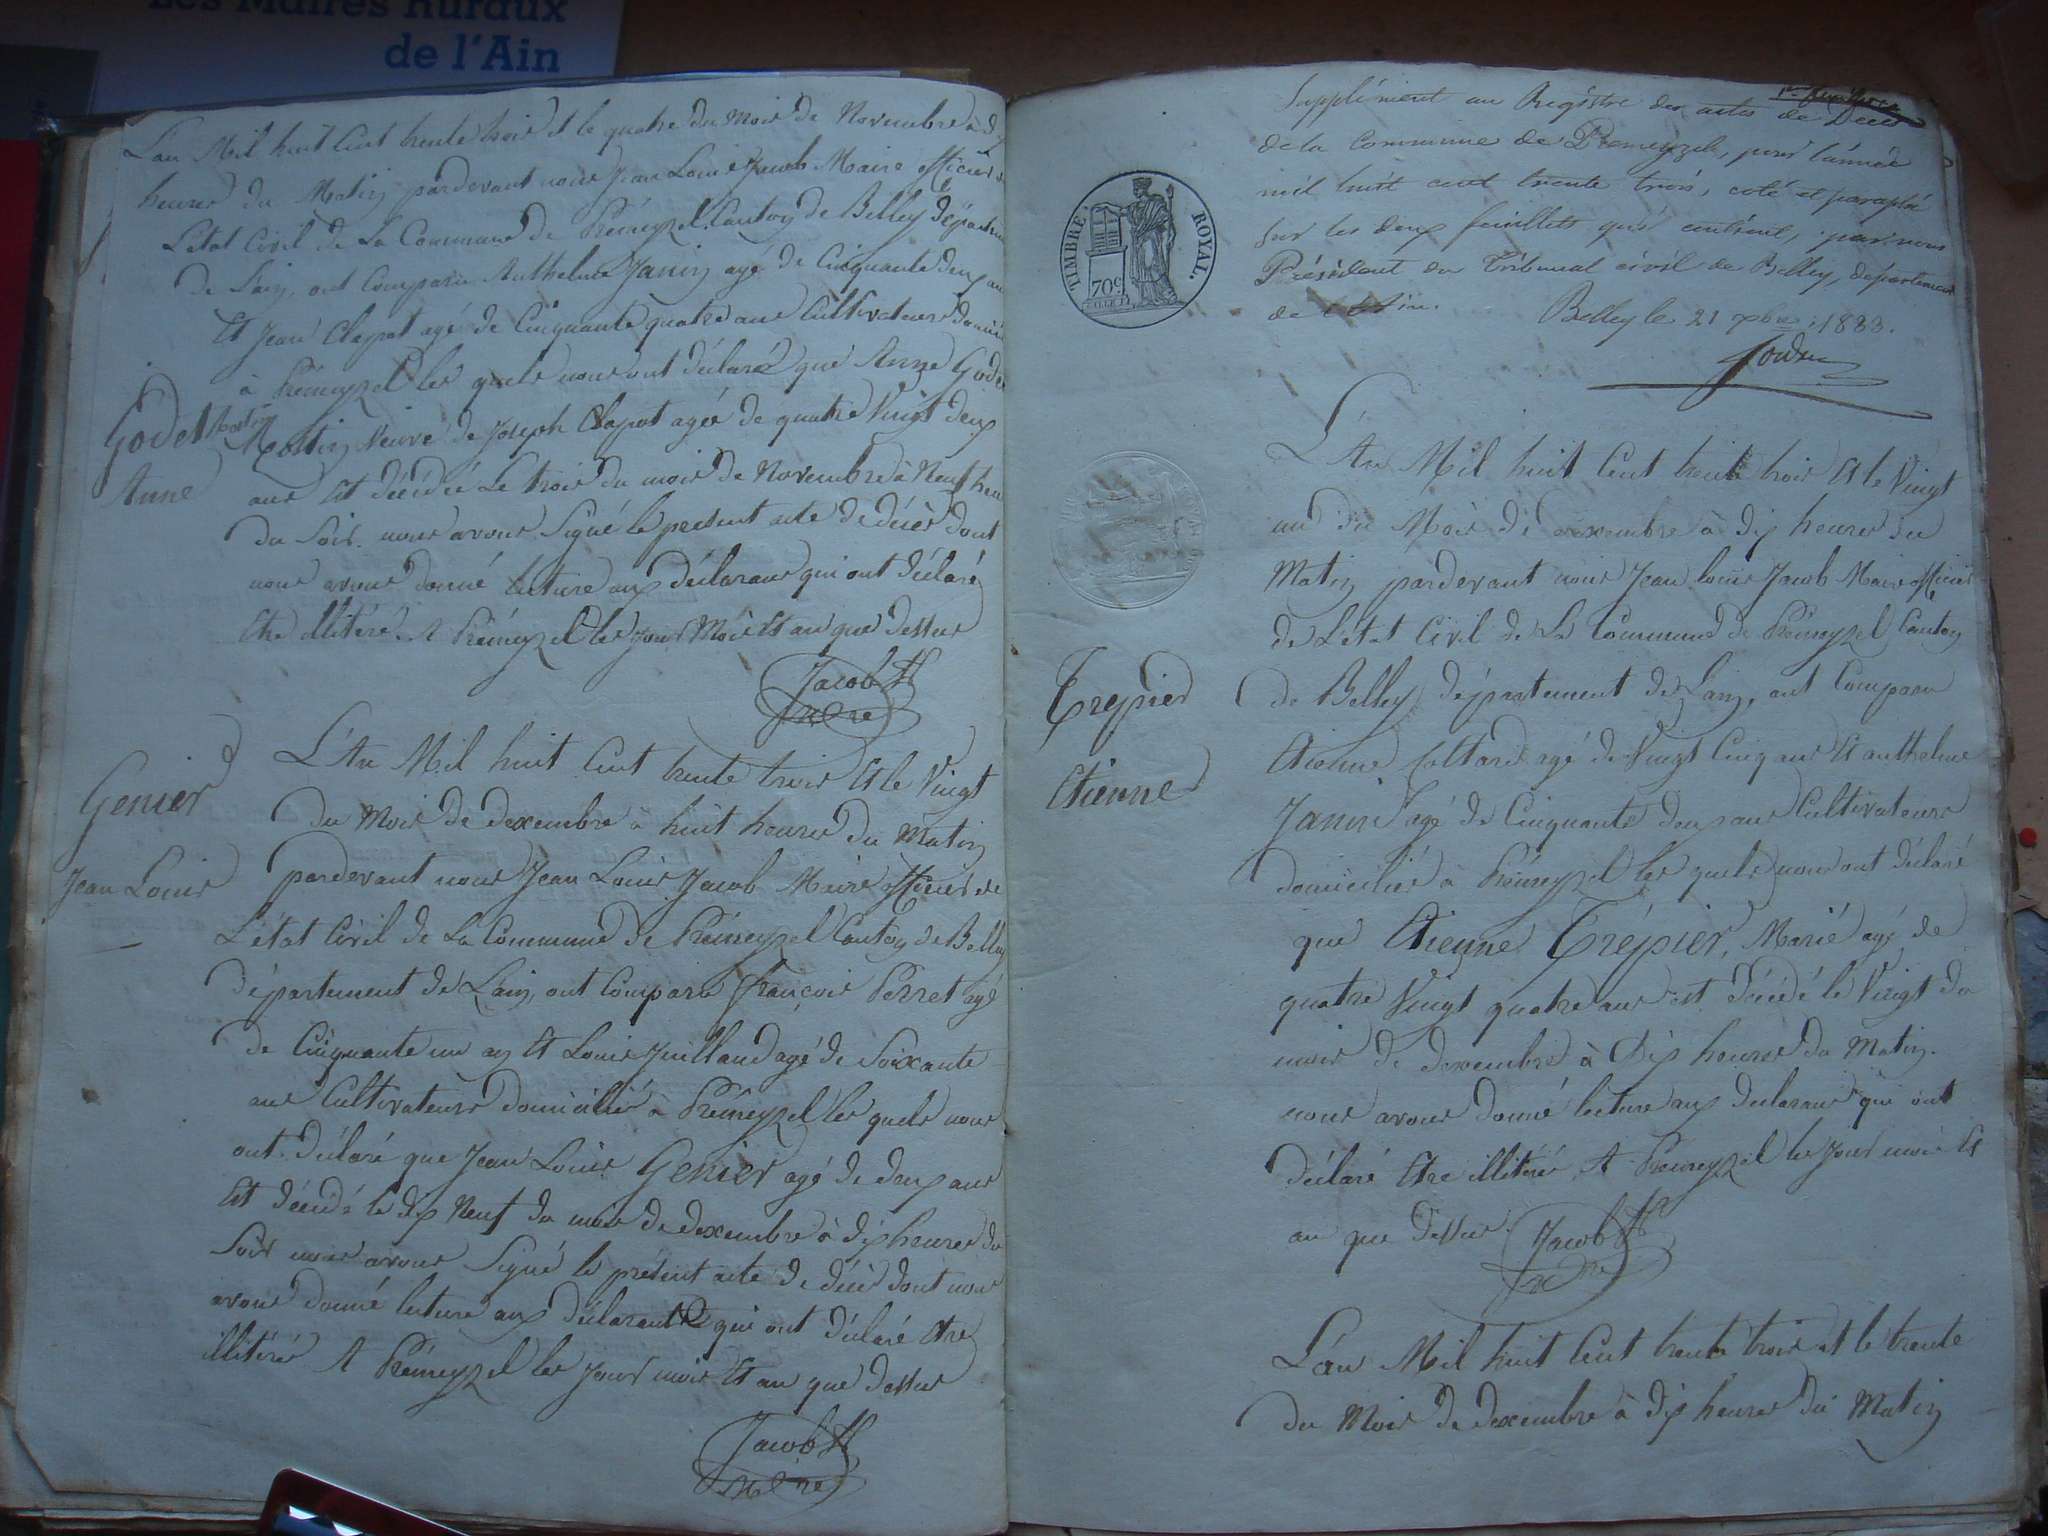 Les Maires Ruraux
de l'Ain
L'an Mil huit Cent trente trois et le quatre du Mois de Novembre à
heures du Matin pardevant nous Jean Louis Jacob Maire officier
L'état Civil de La Commune de Prémeyzel Canton de Belley Départem
de Lain, ont Comparu Anthelme Janin agé de Cinquante deux ans
Et Jean Chapot agé de Cinquante quatre ans Cultivateurs
à Prémeyzel les quels nous ont déclaré que Anne Godet
Godet Martin
Anne
Martin Veuve de Joseph Chapot agée de quatre Vingt deux
ans Est décédée Le trois du mois de Novembre à Neuf heu
du Soir. nous avons Signé le présent acte de décès dont
nous avons donné lecture aux déclarans qui ont déclaré
Etre illitéré. A Prémeyzel les Jour Mois Et an que dessus
Jacob
Mre
Genier
Jean Louis
L'An Mil huit Cent trente trois Et le Vingt
du Mois de dexembre à huit heures du Matin
pardevant nous Jean Louis Jacob Maire officier de
L'état Civil de La Commune de Prémeyzel Canton de Belley
département de Lain, ont Comparu françois Perret agé
de Cinquante un an Et Louis Juilland agé de Soixante
ans Cultivateurs domicilié à Prémeyzel les quels nous
ont déclaré que Jean Louis Genier agé de deux ans
Est décédé le dix Neuf du mois de dexembre à dix heures du
Soir nous avons Signé le présent acte de décès dont nous
avons donné lecture aux déclarants qui ont déclaré Etre
illitérés A Prémeyzel les Jour mois Et an que dessus
Jacob
Mre
Supplément au Régistre des actes de Décès
de la Commune de Premeyzel, pour l'année
mil huit cent trente trois, coté et paraphé
sur les deux feuillets qu'il contient, par nous
Président du Tribunal civil de Belley, département
de l'Ain. Belley le 21 xbre 1833.
TIMBRE ROYAL.
70c
L'An Mil huit Cent trente trois Et le Vingt
un du Mois de dexembre à dix heures du
Matin pardevant nous Jean Louis Jacob Maire officier
de L'état Civil de La Commune de Prémeyzel Canton
Trepier
Etienne
de Belley département de Lain, ont Comparu
Etienne Collard agé de Vingt Cinq ans Et anthelme
Janin agé de Cinquante deux ans Cultivateurs
domicilié à Prémeyzel les quels nous ont déclaré
que Etienne Trépier, Marié agé de
quatre Vingt quatre ans est décédé le Vingt du
mois de dexembre à Dix heures du Matin.
nous avons donné lecture aux declarans qui ont
déclaré Etre illitéré, A Prémeyzel les Jour mois Et
an que dessus
Jacob
Mre
L'an Mil huit Cent trente trois et le trente
du Mois de dexembre à dix heures du Matin